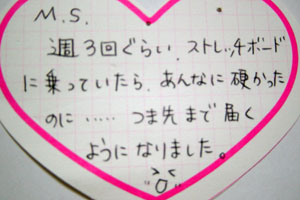 M.S.
週3回ぐらい、ストレッチボード
に乗っていたら、あんなに硬かった
のに……つま先まで届く
ようになりました。
"O"